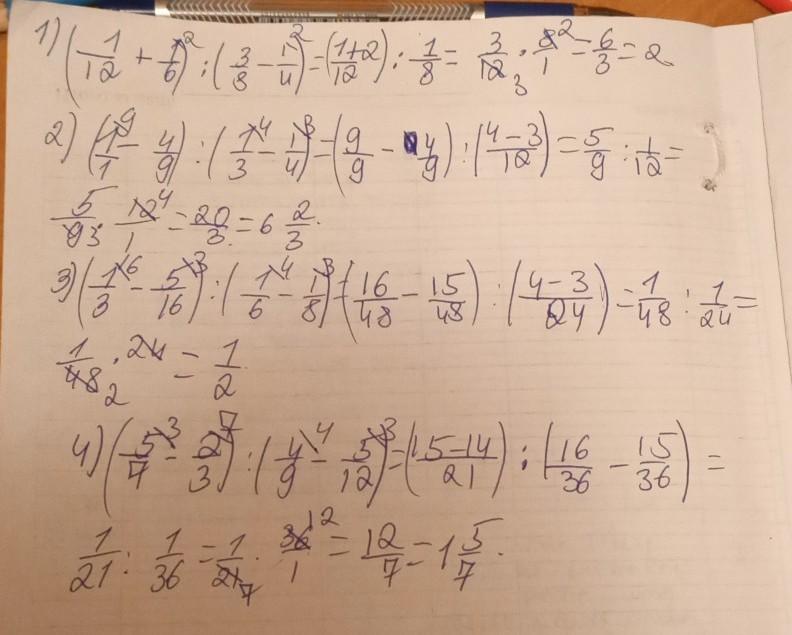 1) (1/12 + 1/6^2) : (3/8 - 1/4^2) = (1+2/12) : 1/8 = 3/12 3 · 8^2/1 = 6/3 = 2
2) (1^9/1 - 4/9) : (1^4/3 - 1^3/4) = (9/9 - 4/9) : (4-3/12) = 5/9 : 1/12 =
5/9 3 · 12^4/1 = 20/3 = 6 2/3.
3) (1^16/3 - 5^3/16) : (1^4/6 - 1^3/8) = (16/48 - 15/48) : (4-3/24) = 1/48 : 1/24 =
1/48 2 · 24 = 1/2.
4) (5^3/7 - 2^7/3) : (4^4/9 - 5^3/12) = (15-14/21) : (16/36 - 15/36) =
1/21 : 1/36 = 1/21 7 · 36^12/1 = 12/7 = 1 5/7.